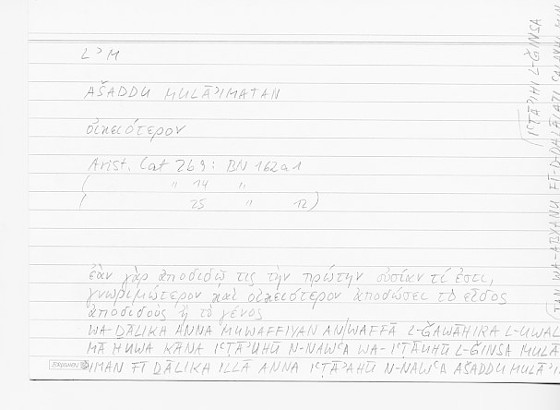 LʾM
AŠADDU MULĀʾIMATAN
οἰκειότερον
Arist. Cat 2b9: BN 162a1
( " 14 "
( 25 " 12)
ἐὰν γὰρ ἀποδιδῷ τις τὴν πρώτην οὐσίαν τί ἐστι,
γνωριμώτερον καὶ οἰκειότερον ἀποδώσει τὸ εἶδος
ἀποδιδοὺς ἢ τὸ γένος
WA-ḎĀLIKA ANNA MUWAFFIYAN AN/WAFFĀ L-ǦAWĀHIRA L-UWAL
MĀ HUWA KĀNA IʿṬĀʾUHŪ N-NAWʿA WA-IʿṬĀʾUHŪ L-ǦINSA MULĀ
ʾIMAN FĪ ḎĀLIKA ILLĀ ANNA IʿṬĀʾAHŪ N-NAWʿA AŠADDU MULĀʾI
IʿṬĀʾIHI L-ǦINSA
TAN WA-ABYANU FĪ D-DALĀLATI